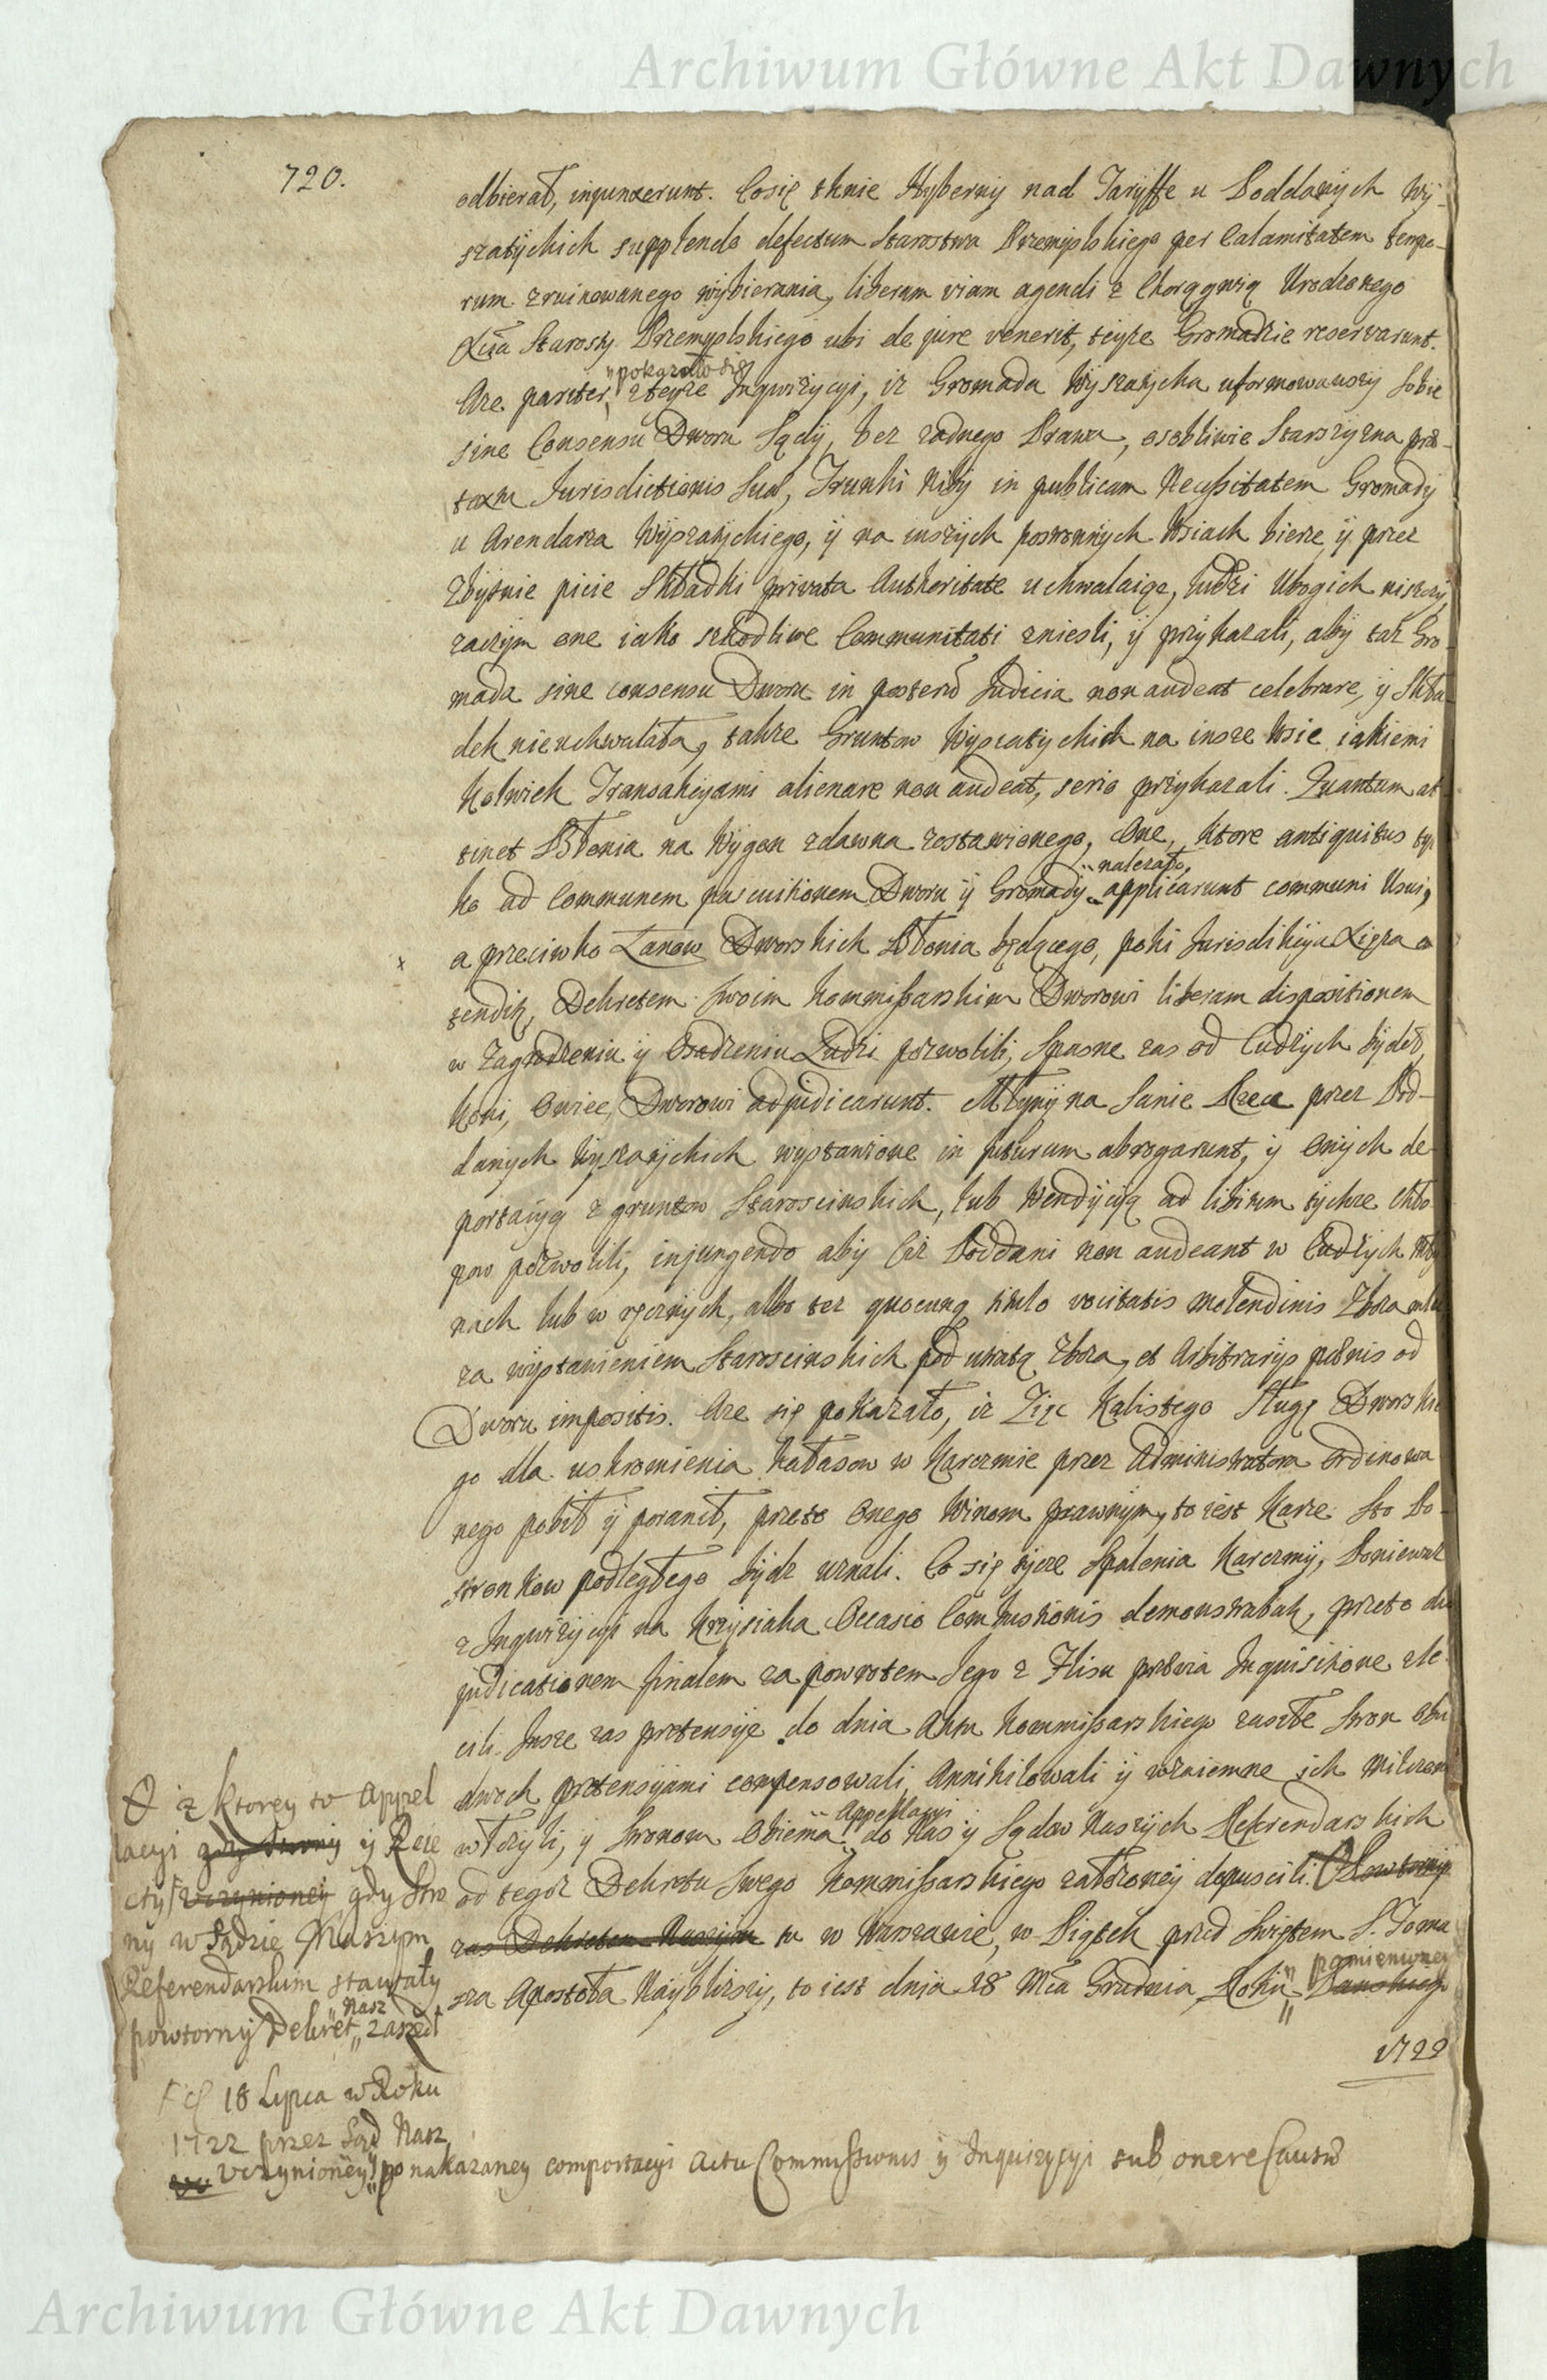 Archiwum Główne Akt Dawnych
720.
odbierał, injunxerunt. Cosię tknie Hyberny nad Taryffę u Poddanych Wy-
szatyckich supplendo defectum Starostwa Przemyslskiego per Calamitatem tempo-
rum zruinowanego wybierania, liberam viam agendi z Chorągwią Urodzonego
Xcia Starosty Przemyslskiego ubi de jure venerit, teyże Gromadzie reservarunt.
"pokazało się
Aże pariter, zteyże Inqwizycyi, iż Gromada Wyszatycka uformowawszy sobie
sine Consensu Dworu Sądy, bez żadnego Prawa, osobliwie Starszyzna præ-
textu Jurisdictionis suæ, Trunki niby in publicam Necessitatem Gromady
u Arendarza Wyszatyckiego, y na inszych postronnych Wsiach bierze y przez
Zbytnie picie Składki privata Authoritate uchwalaiąc, ludzi Ubogich niszczy,
zaczym one iako szkodliwe Communitati znieśli, y przykazali, aby taż Gro-
mada sine consensu Dworu in posterū Judicia non audeat celebrare, y Skła
dek nieuchwalała, także Gruntow Wyszatyckich na insze Wsie iakiemi
kolwiek Transakcyami alienare non audeat, serio przykazali. Quantum at
tinet Błonia na Wygon zdawna zostawionego, One, ktore antiquitus tyl
"należało,
ko ad Communem pascuitionem Dworu y Gromady applicarunt communi Usui,
x a przeciwko Łanow Dworskich Błonia będącego, poki Jurisdikcya Xięża o
tendit, Dekretem swoim Kommissarskim Dworowi liberam dispositionem
w Zagrodzeniu y Osadzeniu Ludzi pozwolili, Spasne zas od Cudzych bydeł,
Koni, Owiec, Dworowi adjudicarunt. Młyny na Sanie Rzece przez Pod-
danych Wyszatyckich wystawione in futurum abrogarunt, y onych de
portacyą z gruntow Staroscinskich, lub Wendycyą ad libitum tychże chło
pow pozwolili, injungendo aby Ciż Poddani non audeant w Cudzych Mły
nach lub w ręcznych, albo też quocunq titulo vocitatis molendinis Zboża mleć
za wystawieniem Staroscinskich pod utratą zboża, et Arbitrarijs pœnis od
Dworu impositis. Aże się pokazało, iż Zięć Kalistego Sługę Dworskie
go dla uskromienia hałasow w Karczmie przez Administratora ordinowa
nego pobił y poranił, przeto onego Winom prawnym, to iest Karze Sto Po-
stronkow podległego bydź uznali. Co się tycze Spalenia Karczmy, Ponieważ
z Inqwizycyi na Krzysiaka Occasio Combustionis demonstrabat, przeto di
judicationem finalem za powrotem Jego z Flisu prævia Inquisitione zle
cili. Insze zas pretensye do dnia Aktu Kommissarskiego zaszłe stron obu
dwoch pretensyami compensowali, Annihilowali y wzaiemne ich milczen
"Appellacyi
włożyli, y stronom obiema do Nas y Sądow Naszych Referendarskich
od tegoż Dekretu swego Kommissarskiego założoney dopuscili. Powtornym
zas Dekretem Naszym tu w Warszawie, w Piątek przed Swiętem S. Toma
sza Apostoła Naybliższy, to iest dnia 18 Mca Grudnia, Roku "pomienioney Panskiego
1722
O z ktorey to Appel
lacyi gdy strony y Reie
ctyj uczynioney gdy stro
ny w Sądzie Naszym
Referendarskim stawały
"Nasz
powtorny Dekret zaszedł
18 Lypca w Roku
1722 przez Sąd Nasz
Uczynioney, po nakazaney comportacyi Actu Commissionis y Inquizycyi sub onere Causæ
Archiwum Główne Akt Dawnych